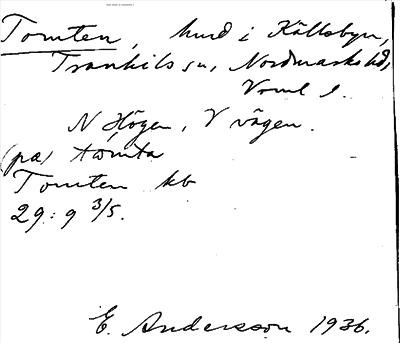 Tomten, hmd i Källsbyn,
Trankils sn, Nordmarks hd,
Vrml l.
N Högen, V vägen.
(på) tòmta
Tomten kb
29:9 3/5.
E. Andersson 1936.